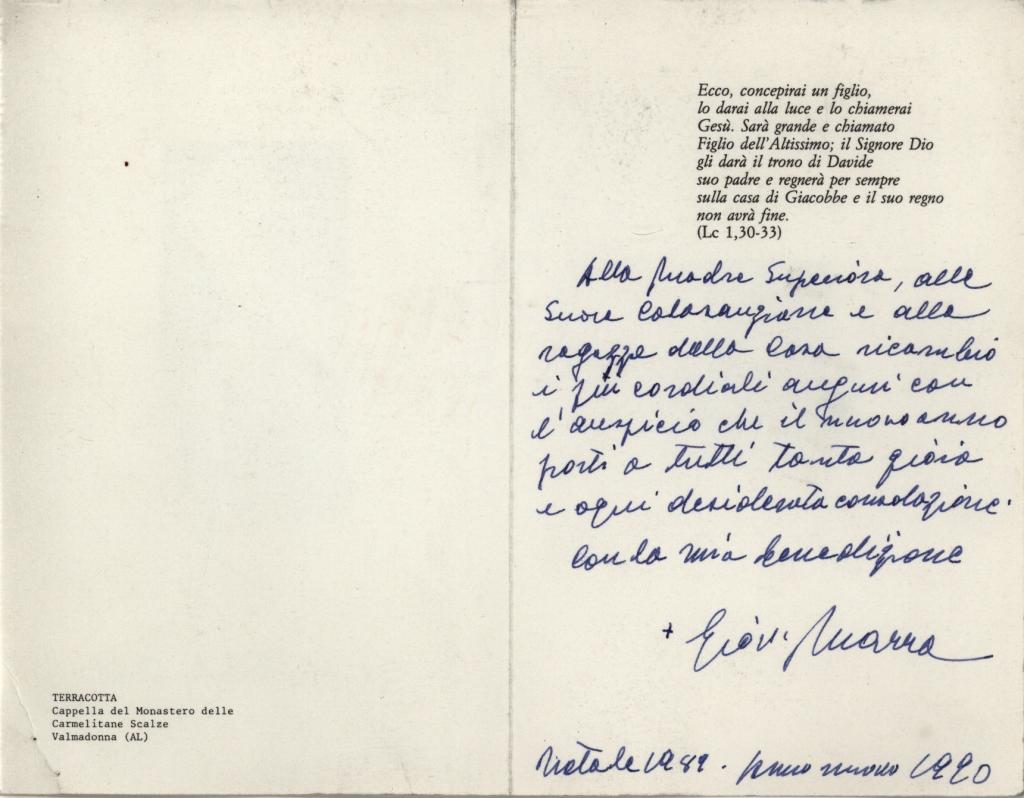 TERRACOTTA
Cappella del Monastero delle
Carmelitane Scalze
Valmadonna (AL)
Ecco, concepirai un figlio,
lo darai alla luce e lo chiamerai
Gesù. Sarà grande e chiamato
Figlio dell'Altissimo; il Signore Dio
gli darà il trono di Davide
suo padre e regnerà per sempre
sulla casa di Giacobbe e il suo regno
non avrà fine.
(Lc 1,30-33)
Alla Madre Superiora, alle
Suore e alle
ragazze della Casa ricambio
i più cordiali auguri con
l'auspicio che il nuovo anno
porti a tutti tanta gioia
e ogni desiderata consolazione.
Con la mia benedizione
+ Giov. Marra
Natale 1989. Anno nuovo 1990